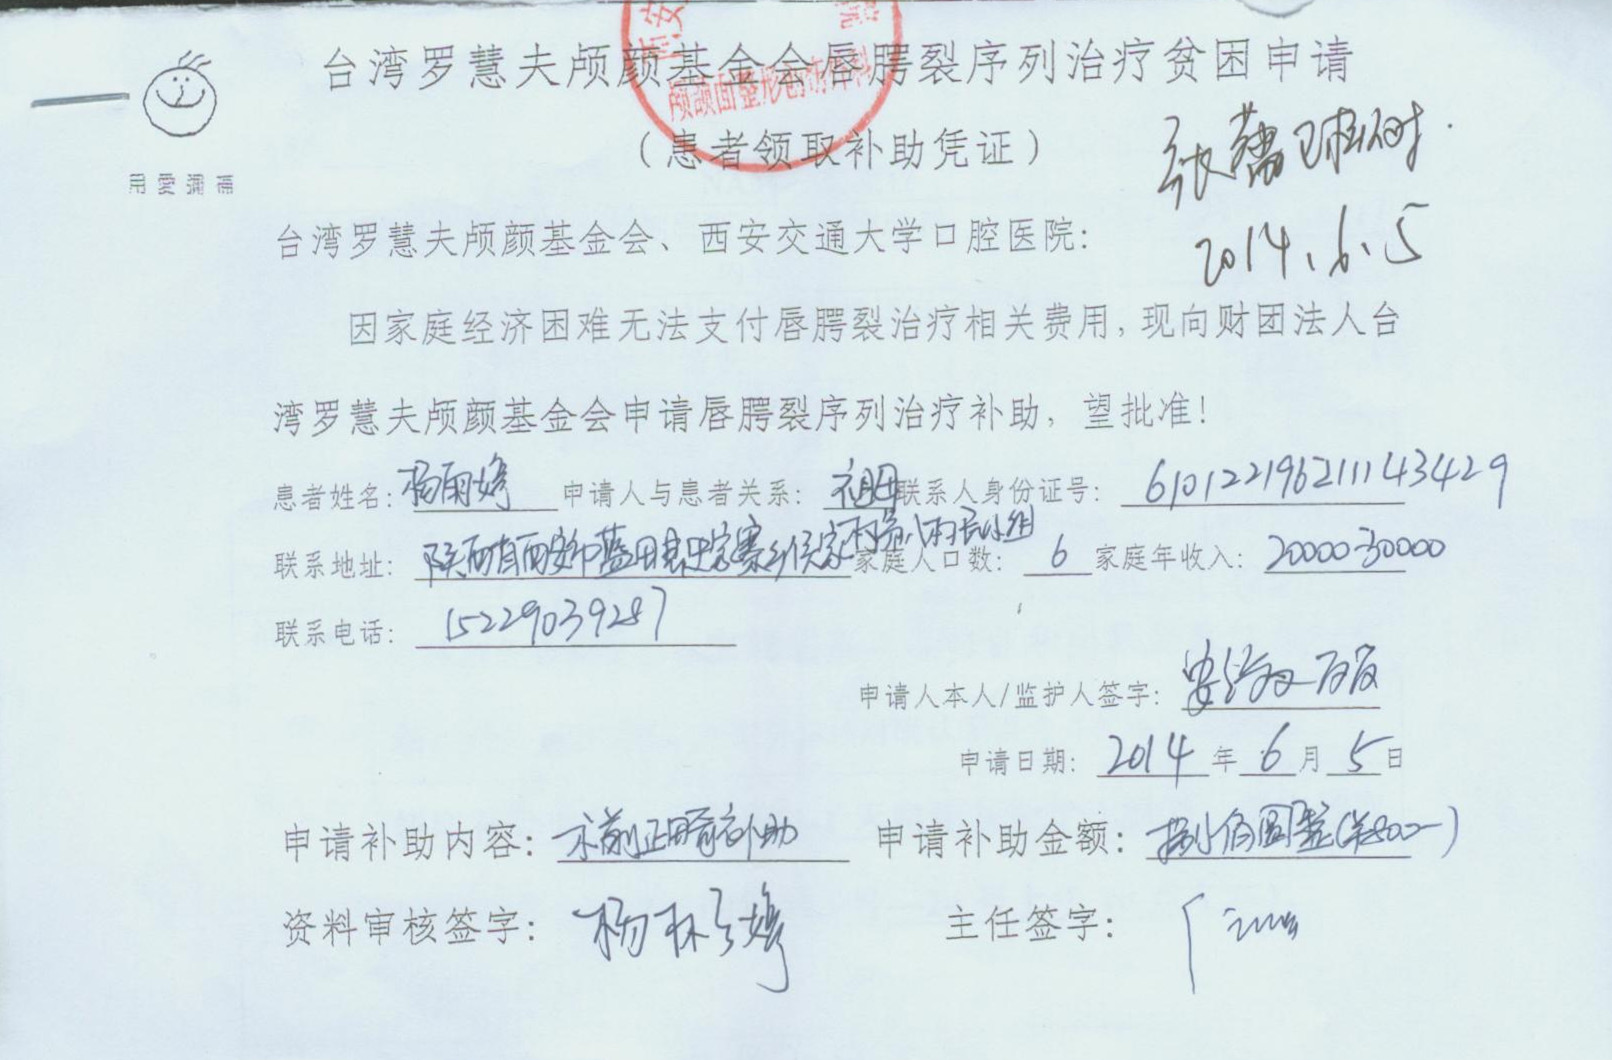 台湾罗慧夫颅颜基金会唇腭裂序列治疗贫困申请
（患者领取补助凭证）
用愛彌補
2014.6.5
台湾罗慧夫颅颜基金会、西安交通大学口腔医院：
因家庭经济困难无法支付唇腭裂治疗相关费用，现向财团法人台
湾罗慧夫颅颜基金会申请唇腭裂序列治疗补助，望批准！
患者姓名：杨雨婷 申请人与患者关系：祖母 联系人身份证号：610122196211143429
联系地址：陕西省西安市蓝田县史家寨乡侯家村 家庭人口数：6 家庭年收入：20000-30000
联系电话：15229039287
申请人本人/监护人签字：
申请日期：2014年6月5日
申请补助内容：术前正畸补助 申请补助金额：捌佰圆整(¥800-)
资料审核签字： 主任签字：